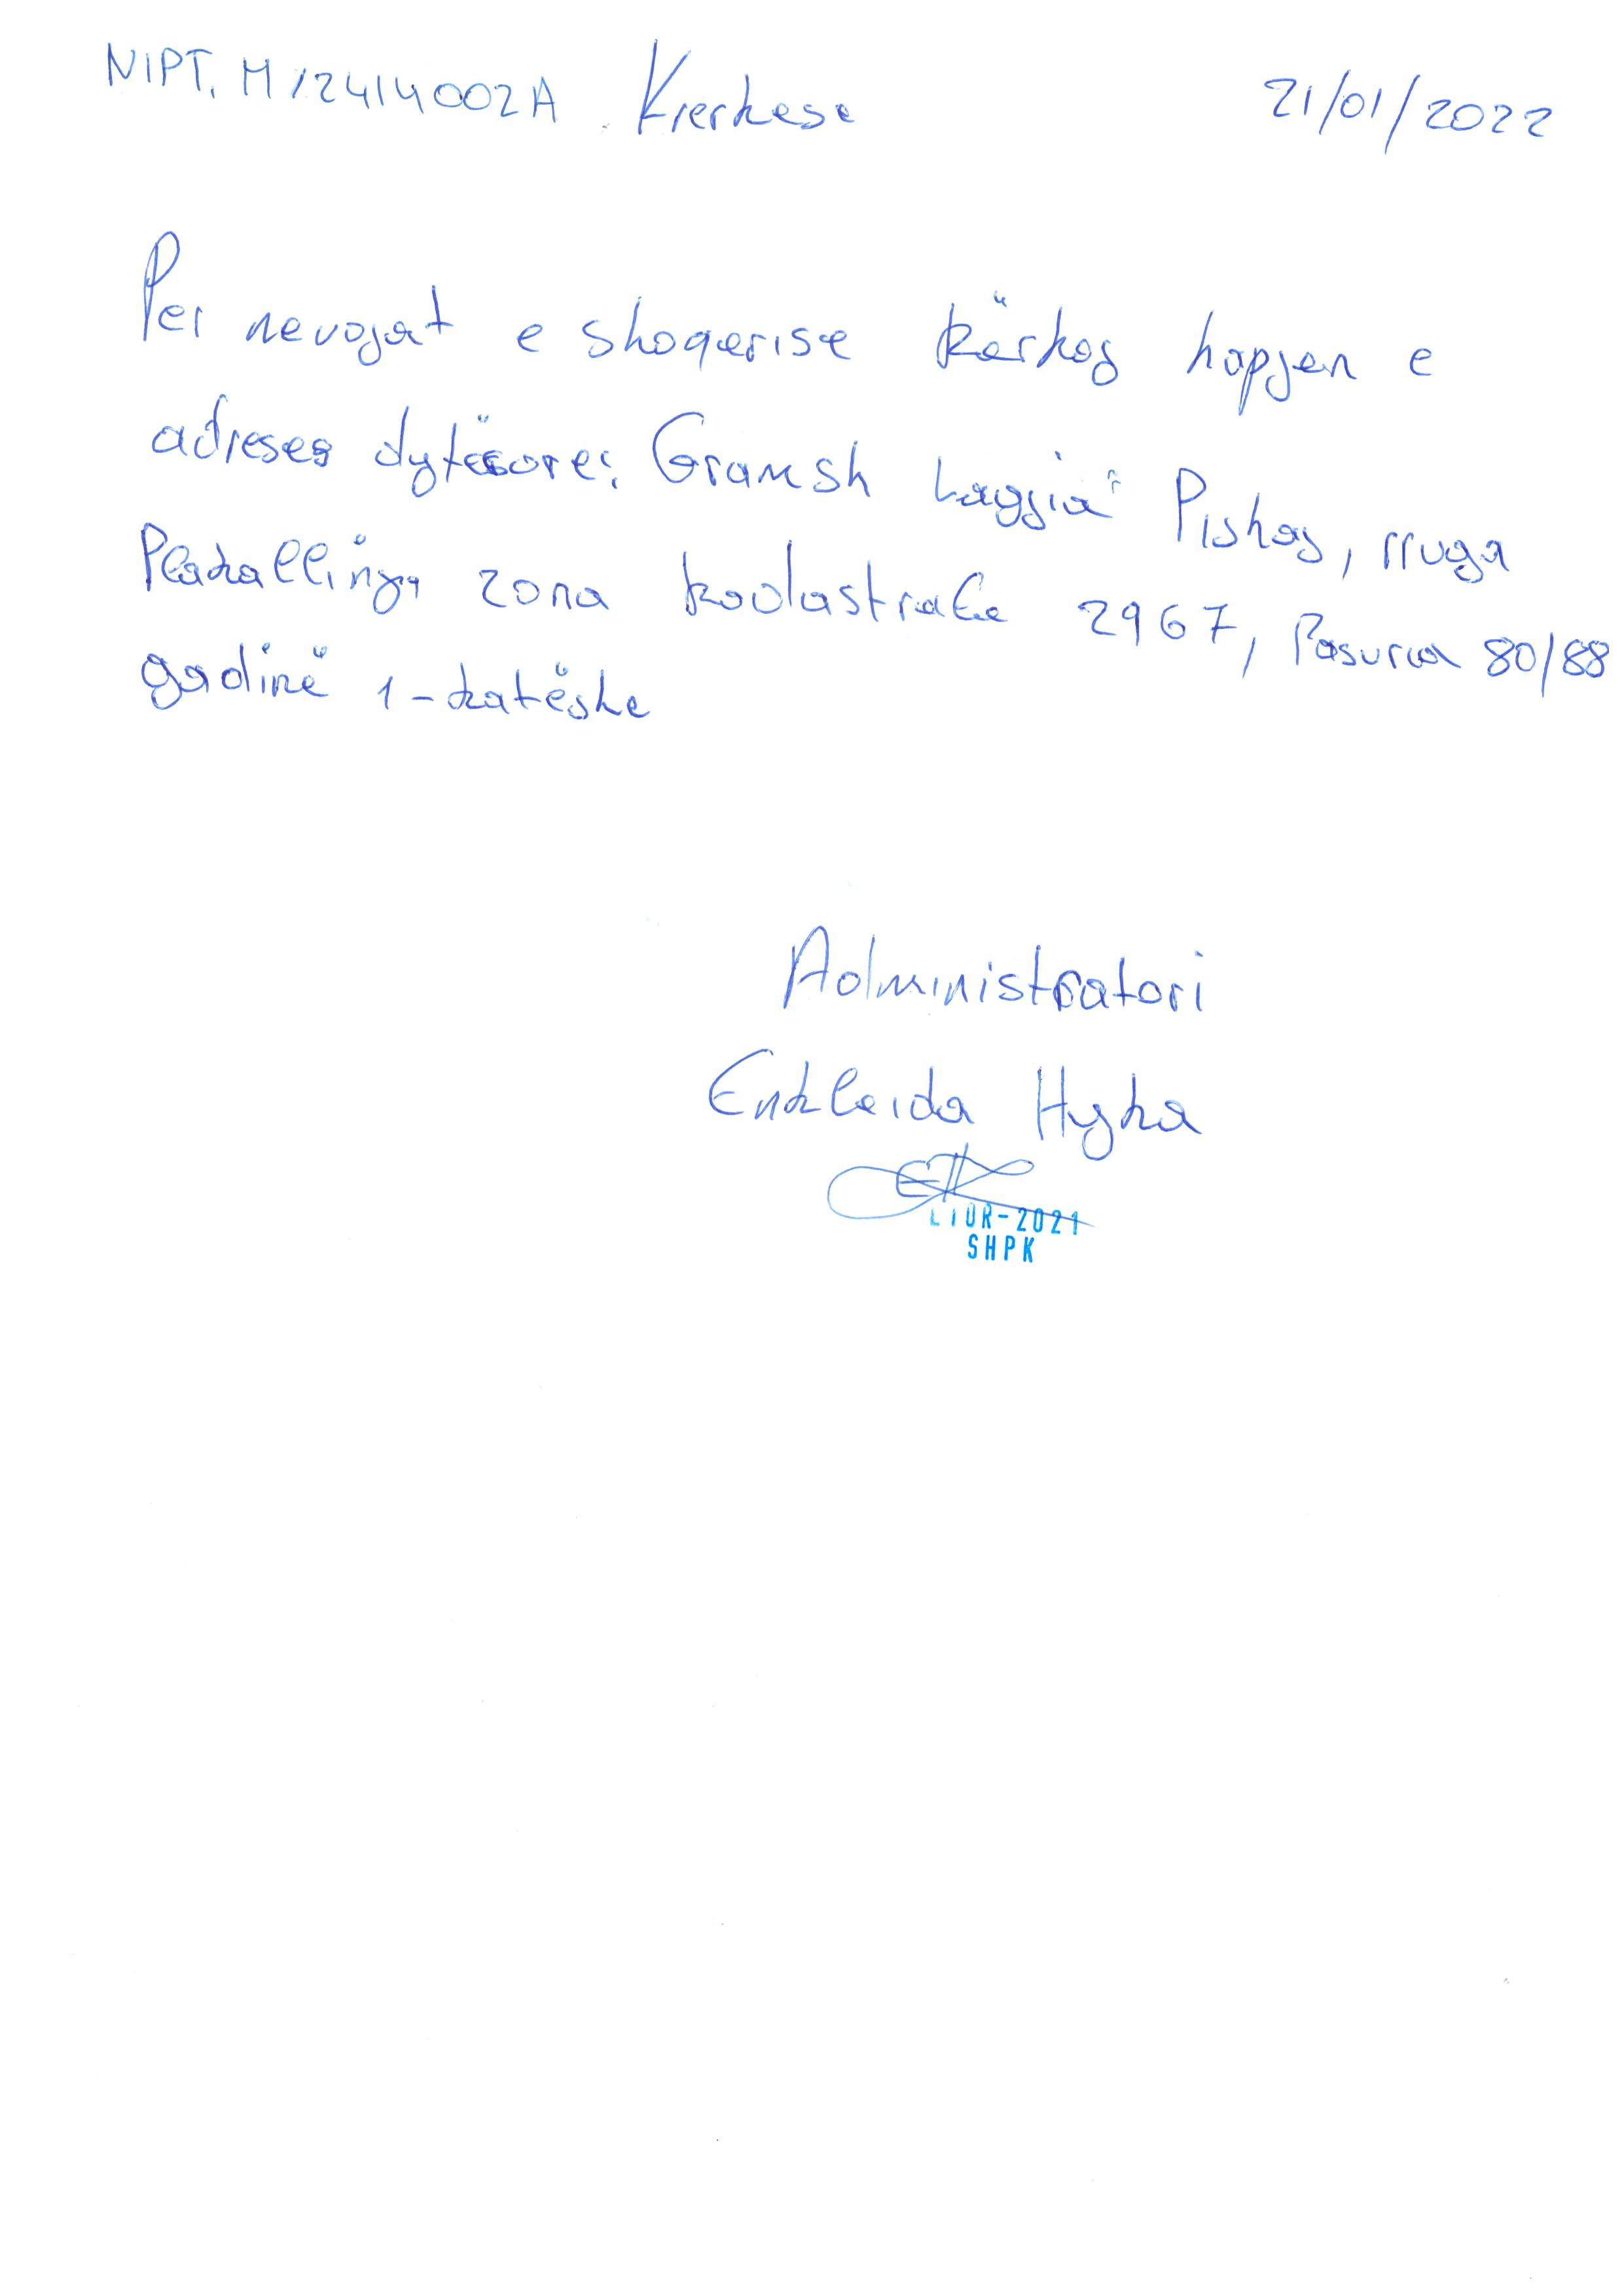 NIPT. M12414002A Kërkese 21/01/2022
Per nevojat e shoqerise kërkoj hapjen e
adreses dytësore: Gramsh Lagjia Pishaj, rruga
zona kadastrale 2967, Pasuria 80/88
godinë 1-katëshe
Administratori
Enkleida Hyka
LIOR-2021
SHPK